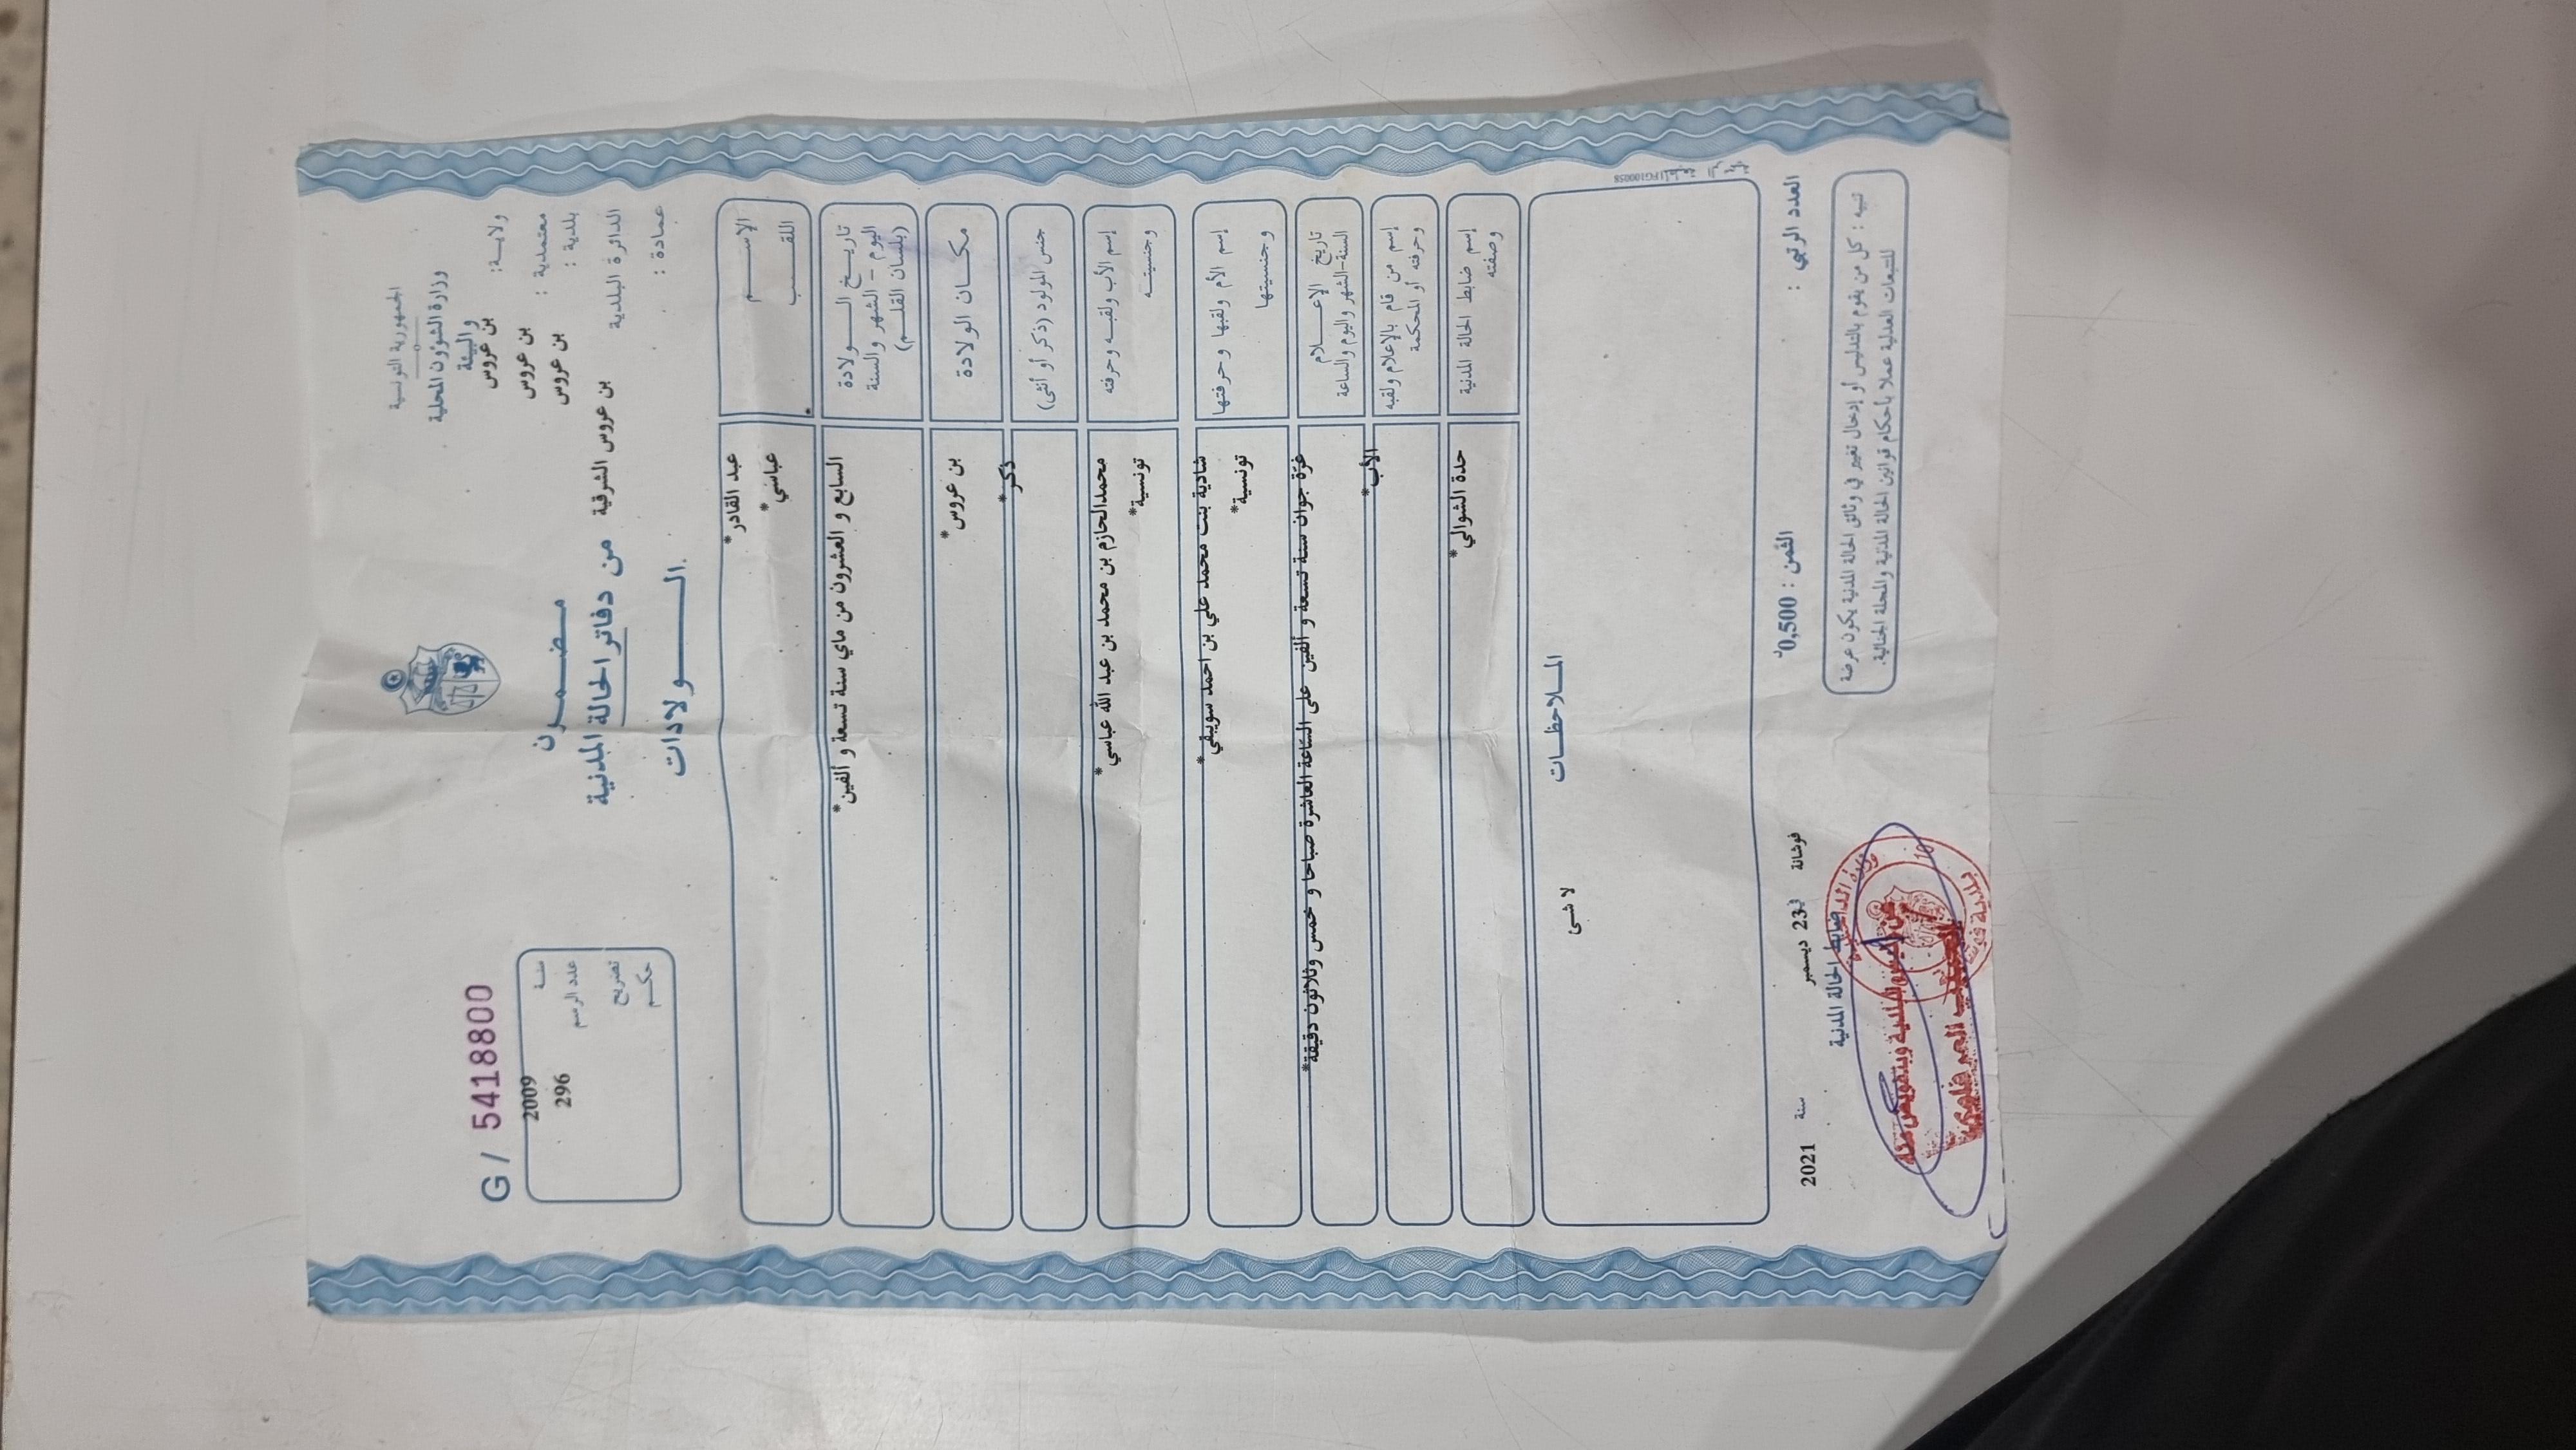 الجمهورية التونسية
وزارة الشؤون المحلية
والبيئة
ولايـة: بن عروس
معتمدية : بن عروس
بلدية : بن عروس
الدائرة البلدية بن عروس الشرقية
عمادة :
مضمون
من دفاتر الحالة المدنية
الولادات
G / 5418800
سنة 2009
عدد الرسم 296
تصريح
حكم
الإسم عبد القادر*
اللقب عباسي*
تاريخ الولادة السابع و العشرون من ماي سنة تسعة و ألفين*
اليوم - الشهر والسنة
(بلسان القلم)
مكان الولادة بن عروس*
جنس المولود (ذكر أو أنثى) ذكر*
إسم الأب ولقبه وحرفته محمدالحازم بن محمد بن عبد الله عباسي*
وجنسيته تونسية*
إسم الأم ولقبها وحرفتها شادية بنت محمد علي بن احمد سويبقي*
وجنسيتها تونسية*
تاريخ الإعلام غرّة جوان سنة تسعة و ألفين على الساعة العاشرة صباحا و خمس وثلاثون دقيقة*
السنة-الشهر واليوم والساعة
إسم من قام بالإعلام ولقبه الأب*
وحرفته أو المحكمة
إسم ضابط الحالة المدنية حدة الشوالي*
وصفته
الملاحظات
لا شئ
العدد الرتبي :
الثمن : 0,500د
فوشانة في 23 ديسمبر سنة 2021
ضابط الحالة المدنية
تنبيه : كل من يقوم بالتدليس أو إدخال تغيير في وثائق الحالة المدنية يكون عرضة
للتتبعات العدلية عملا بأحكام قوانين الحالة المدنية والمجلة الجنائية.